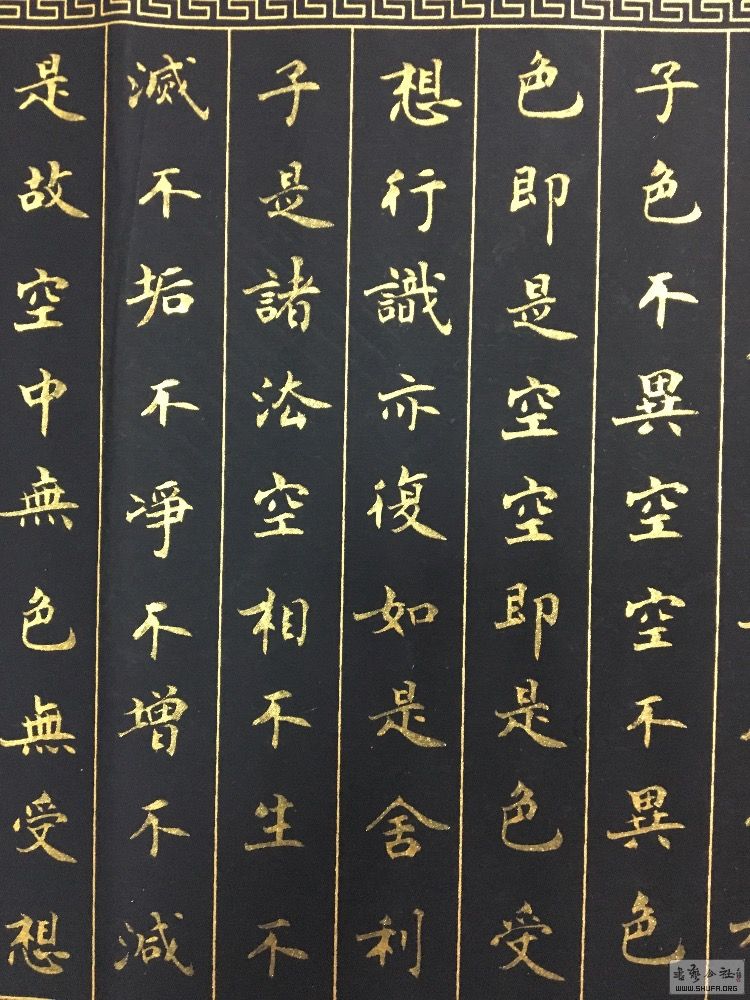 子色不異空空不異色
色即是空空即是色受
想行識亦復如是舍利
子是諸法空相不生不
滅不垢不凈不增不減
是故空中無色無受想
WWW.SHUFA.ORG